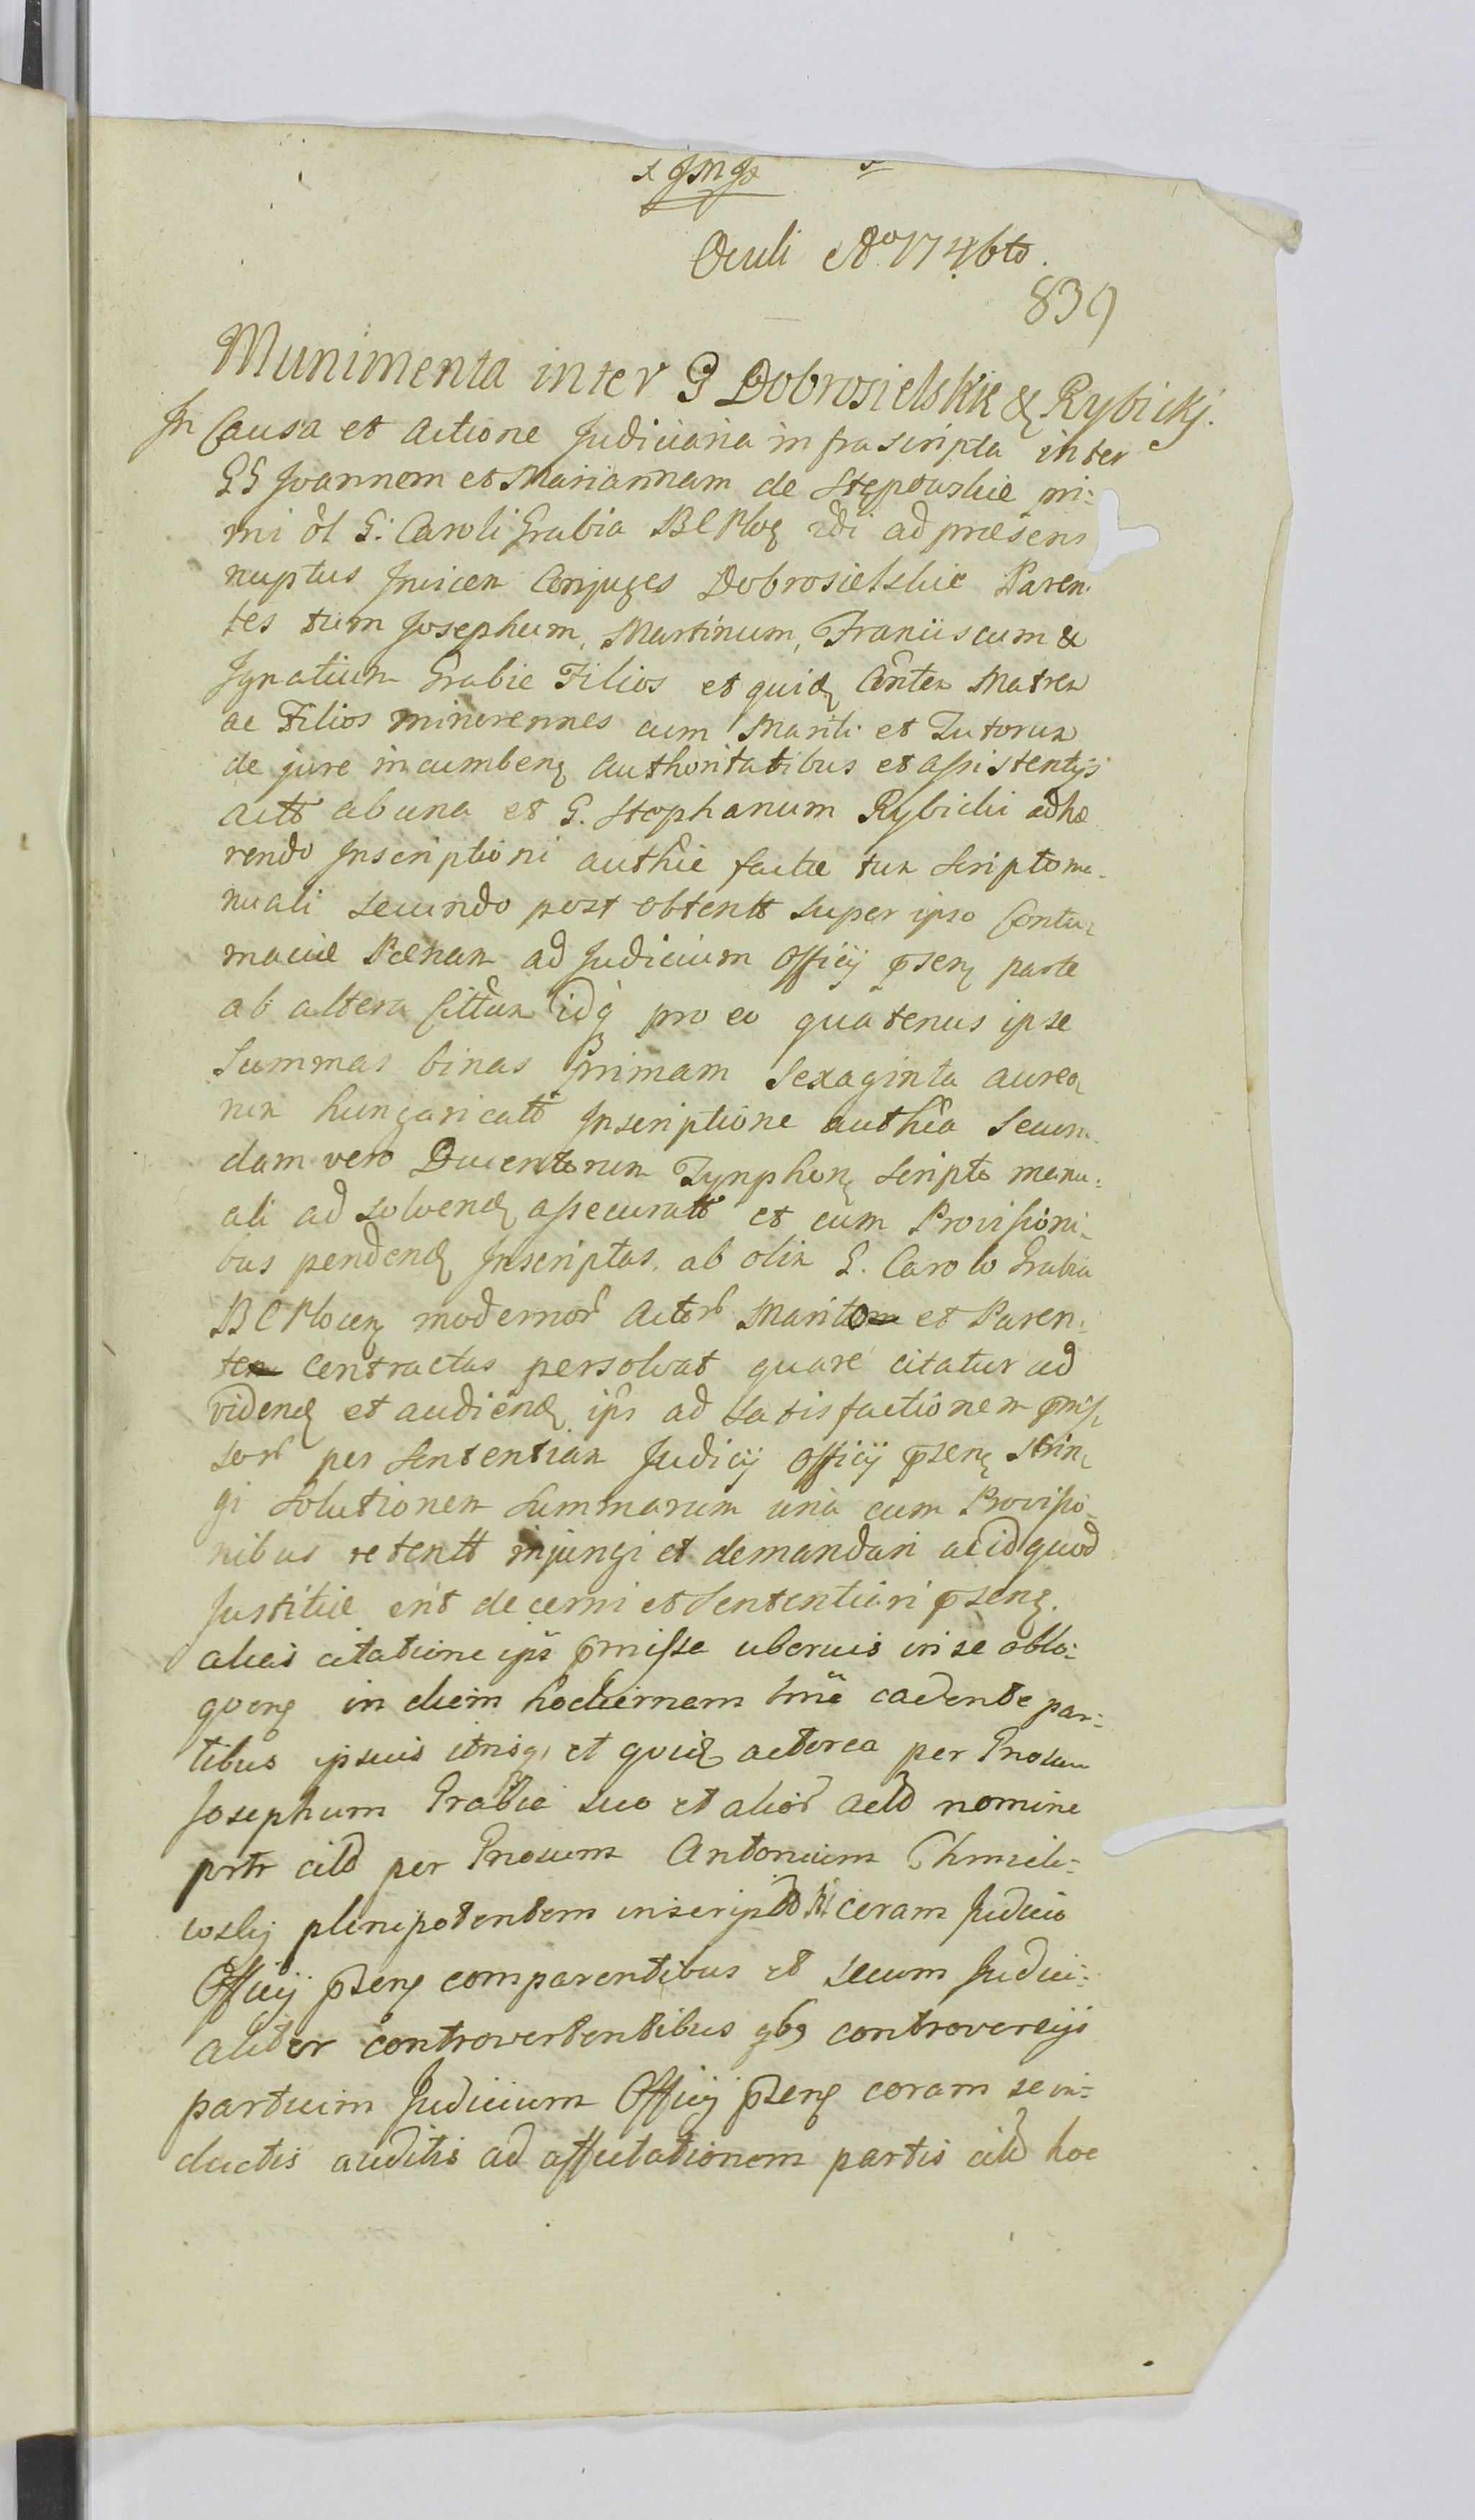 Oculi Ao 1746to.
839
Munimenta inter G Dobrosielskie & Rybickj.
In Causa et Actione Judiciaria infrascripta inter
GG Joannem et Mariannam de Stępouskie pri:
mi ol G: Caroli Grabia BCPloc 2di ad præsens
nuptus Invicem Conjuges Dobrosielskie Paren:
tes tum Josephum, Martinum, Franciscum &
Ignatium Grabie Filios et quidę Conten Matrem
ac Filios minorennes cum Mariti et Tutorum
de jure incumbenę Authoritatibus et assistentijs
actt ab una et G. Stephanum Rybicki adhæ
rendo Inscriptioni authcæ factæ tum Scripto ma-
nuali secundo post obtentt super ipso Contu-
maciæ Pœnam ad Judicium Officij pñsenę parte
ab altera Cittum idq pro eo quatenus ipse
Summas binas primam Sexaginta aureo-
rum hungaricatt Inscriptione authca Secun-
dam vero Ducentorum Tynphonę Scripto manu-
ali ad solvendę assecuratt et cum Provisioni-
bus pendendę Inscriptas. ab olim G. Carolo Grabia
BCPlocenę modernor Actor Marito et Paren:
te contractas persolvat quare citatur ad
videndę et audiendę ips ad satisfactionem pmis-
sor per Sententiam Judicij Officij pñsenę strin-
gi solutionem Summarum una cum Provisio-
nibus retentt injungi et demandari ac id quod
Justitiæ erit decerni et Sententiari pñsenę.
alias citatione ips pmissa uberius in se oblo-
quenę in diem hodiernam tmi cadente par:
tibus ipsius utrisq, et quidę actorea per Gnosum
Josephum Grabia suo et alior actd nomine
prtr citd per Gnosum Antonium Chmieli:
woskj plenipotentem inscriptd coram Judicio
Officij pñsenę comparentibus et secum Judici:
aliter controvertentibus qbs controversijs
partium Judicium Officij pñsenę coram se in-
ductis auditis ad affectationem partis citd hoc